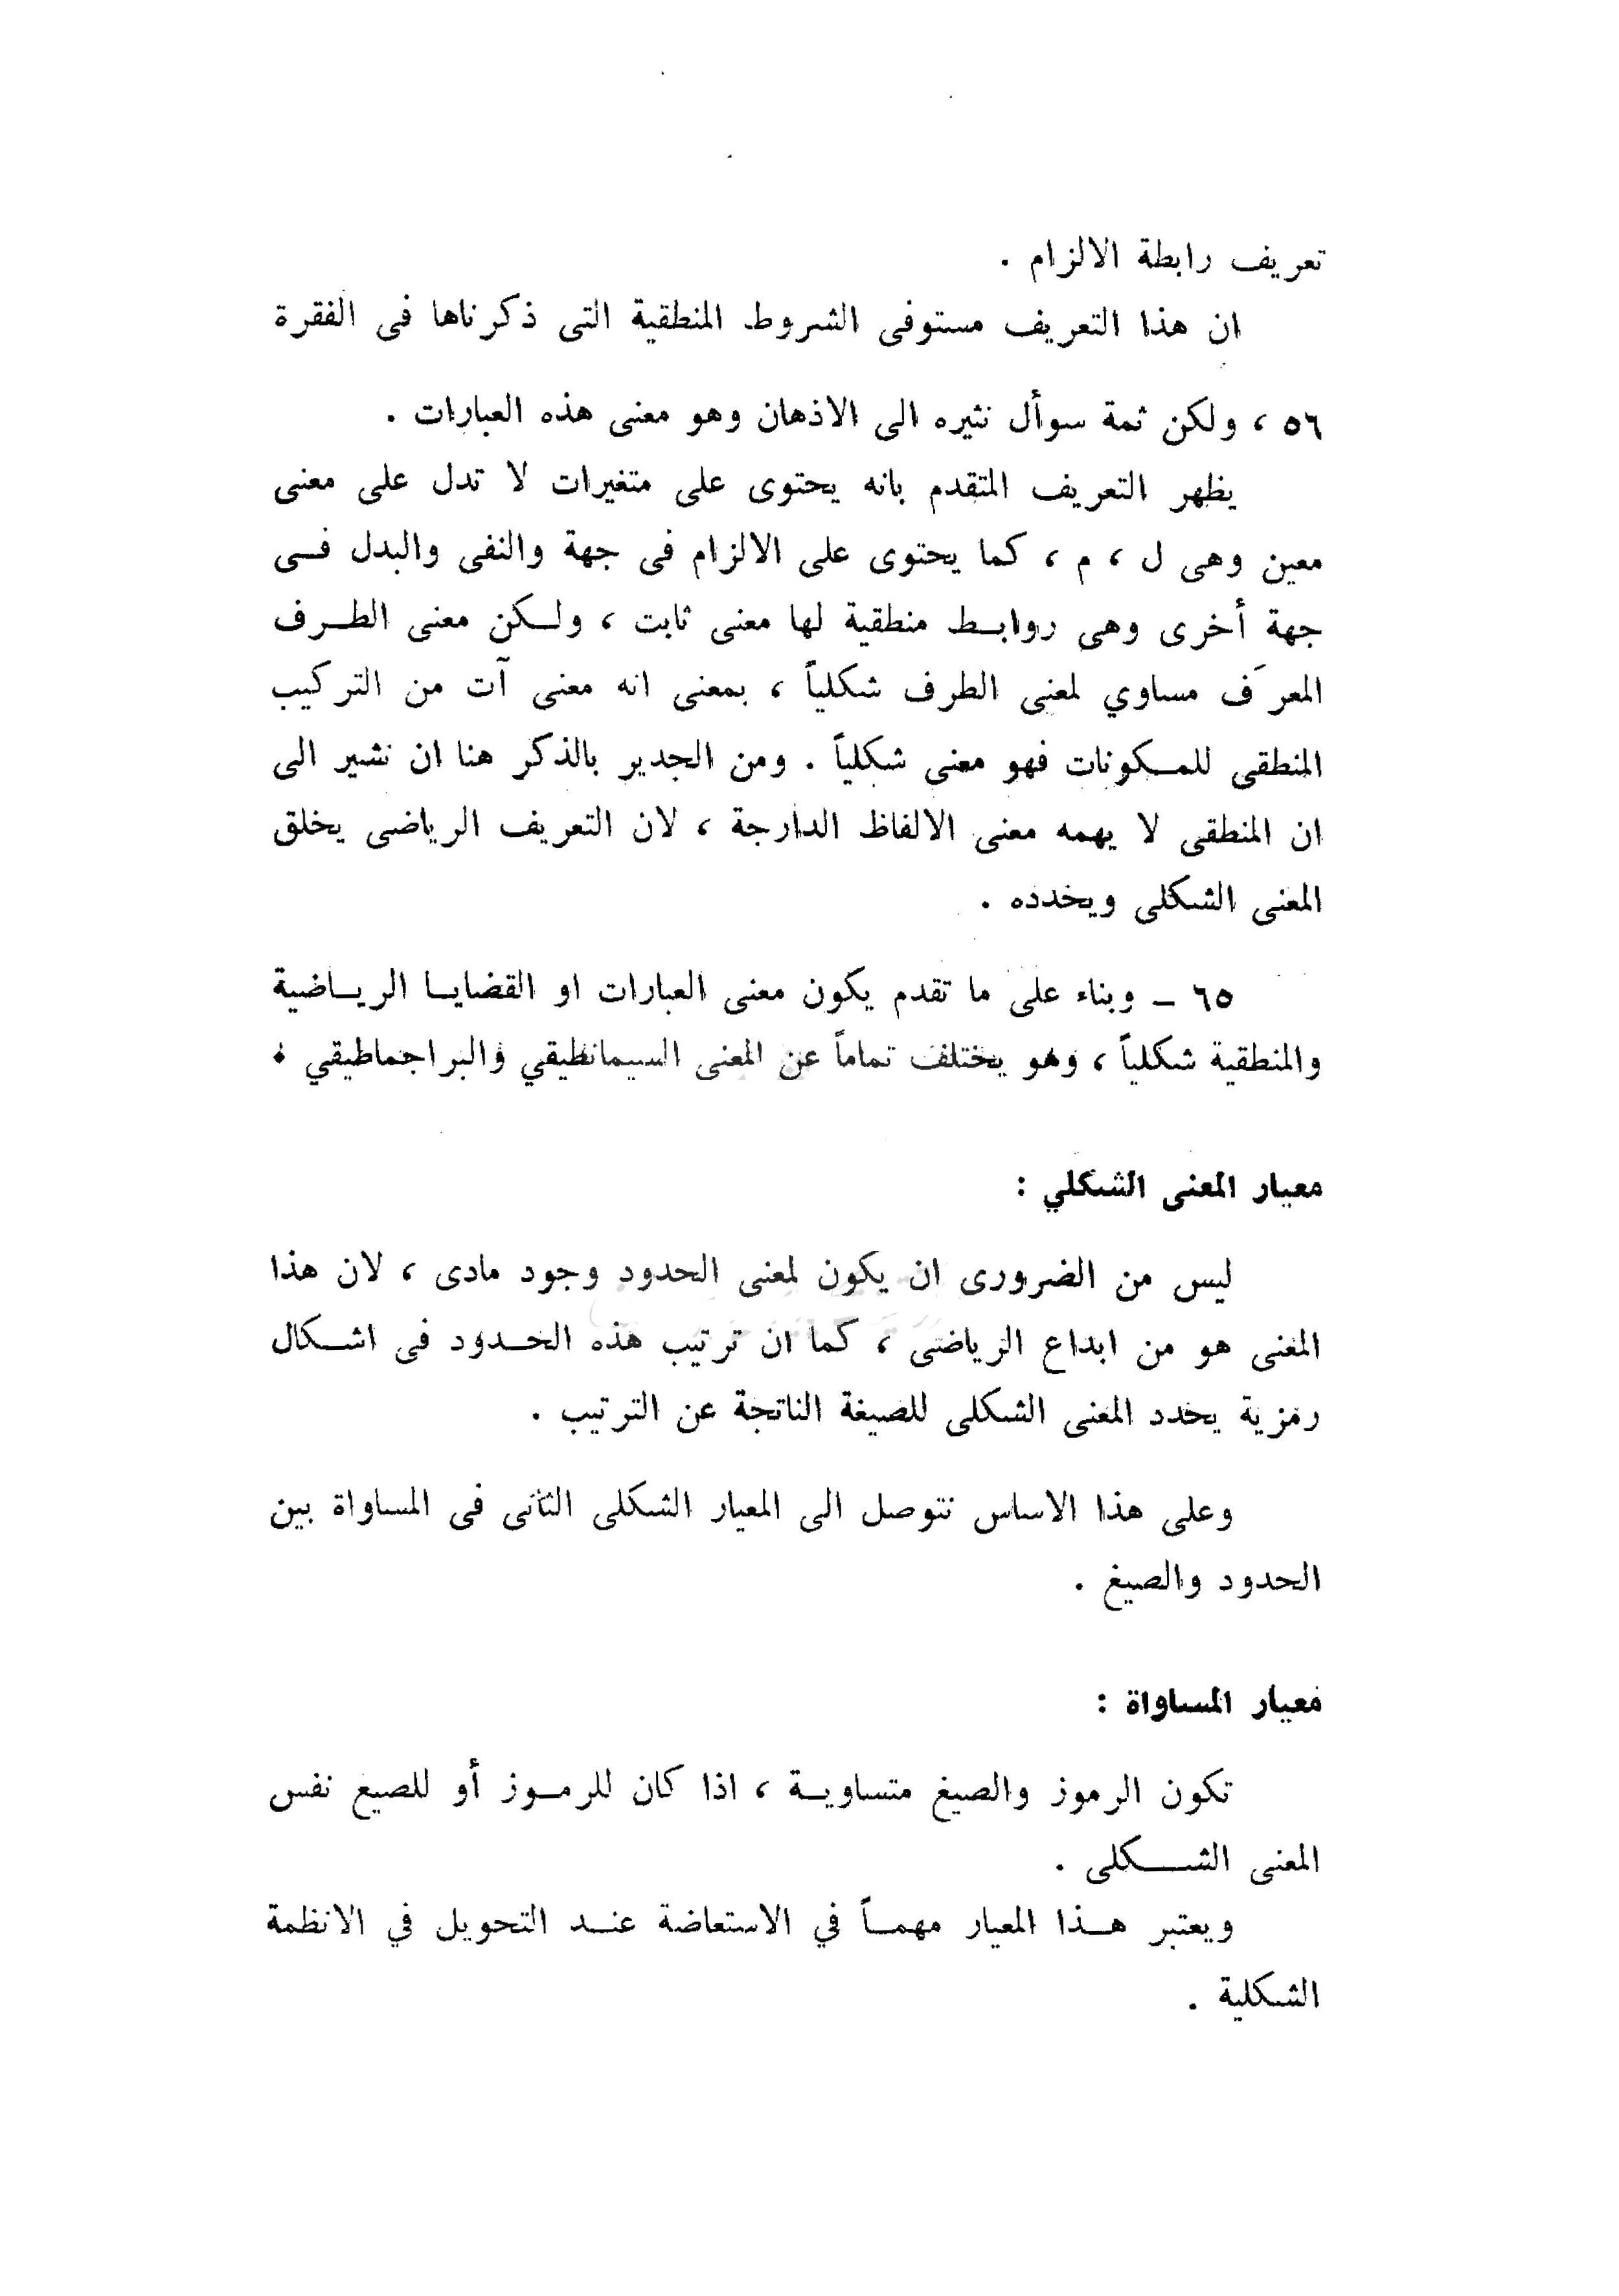 تعريف رابطة الالزام .
ان هذا التعريف مستوفى الشروط المنطقية التى ذكرناها فى الفقرة
٥٦ ، ولكن ثمة سوأل نثيره الى الاذهان وهو معنى هذه العبارات .
يظهر التعريف المتقدم بانه يحتوى على متغيرات لا تدل على معنى
معين وهى ل ، م ، كما يحتوى على الالزام فى جهة والنفى والبدل فى
جهة أخرى وهى روابط منطقية لها معنى ثابت ، ولكن معنى الطرف
المعرَف مساوي لمعنى الطرف شكلياً ، بمعنى انه معنى آت من التركيب
المنطقى للمكونات فهو معنى شكلياً . ومن الجدير بالذكر هنا ان نشير الى
ان المنطقى لا يهمه معنى الالفاظ الدارجة ، لان التعريف الرياضى يخلق
المعنى الشكلى ويحدده .
٦٥ ـ وبناء على ما تقدم يكون معنى العبارات او القضايا الرياضية
والمنطقية شكلياً ، وهو يختلف تماماً عن المعنى السيمانطيقي والبراجماطيقي .
معيار المعنى الشكلي :
ليس من الضرورى ان يكون لمعنى الحدود وجود مادى ، لان هذا
المعنى هو من ابداع الرياضى ، كما ان ترتيب هذه الحدود فى اشكال
رمزية يحدد المعنى الشكلى للصيغة الناتجة عن الترتيب .
وعلى هذا الاساس نتوصل الى المعيار الشكلى الثانى فى المساواة بين
الحدود والصيغ .
معيار المساواة :
تكون الرموز والصيغ متساوية ، اذا كان للرموز أو للصيغ نفس
المعنى الشكلى .
ويعتبر هذا المعيار مهماً في الاستعاضة عند التحويل في الانظمة
الشكلية .